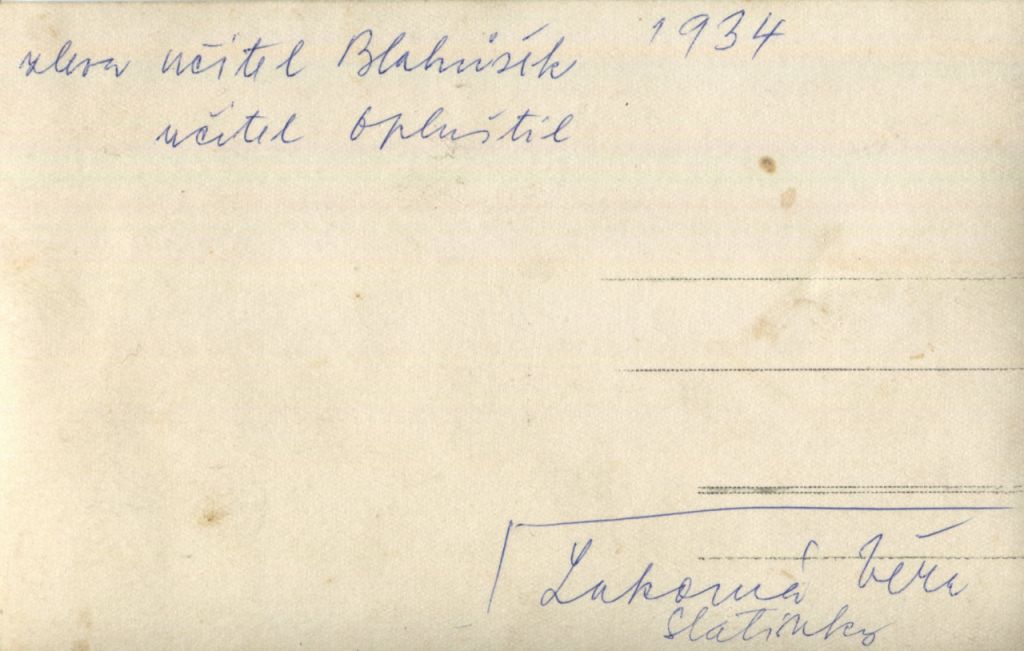 zleva učitel Blahušék 1934
učitel Opluštil
Lakomá Věra
Slatinky